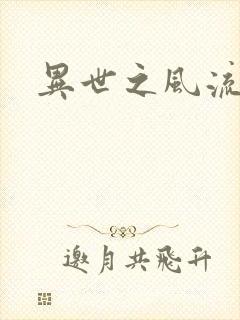 異世之風流
邀月共飛升